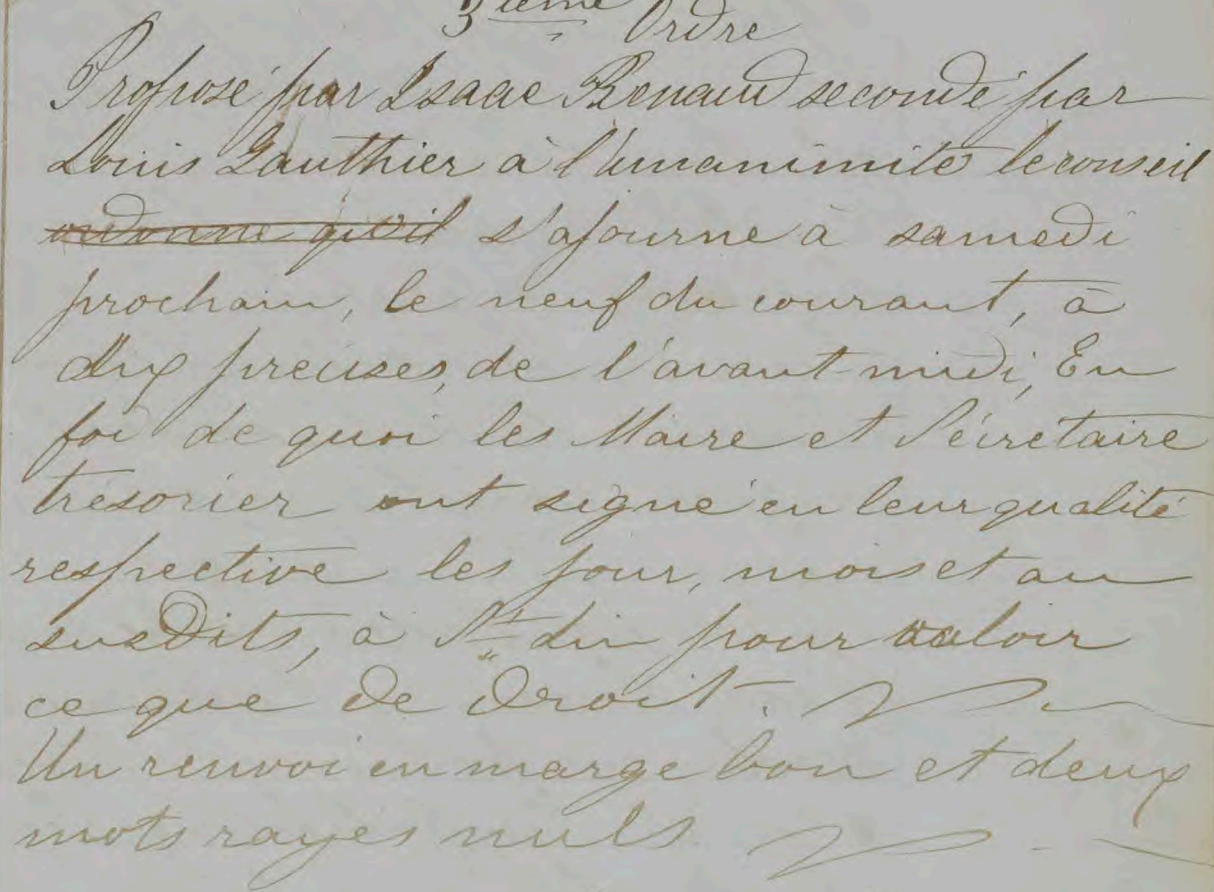 3ième Ordre
Proposé par Isaac Renaud secondé par
Louis Gauthier à l'unanimité le conseil
ordonne qu'il s'ajourne à samedi
prochain, le neuf du courant, à
dix precises, de l'avant midi, En
foi de quoi les Maire et Sécretaire
trésorier ont signé en leur qualité
respective les jour, mois et an
susdits, à St Lin pour valoir
ce que de droit.
Un renvoi en marge bon et deux
mots rayés nuls